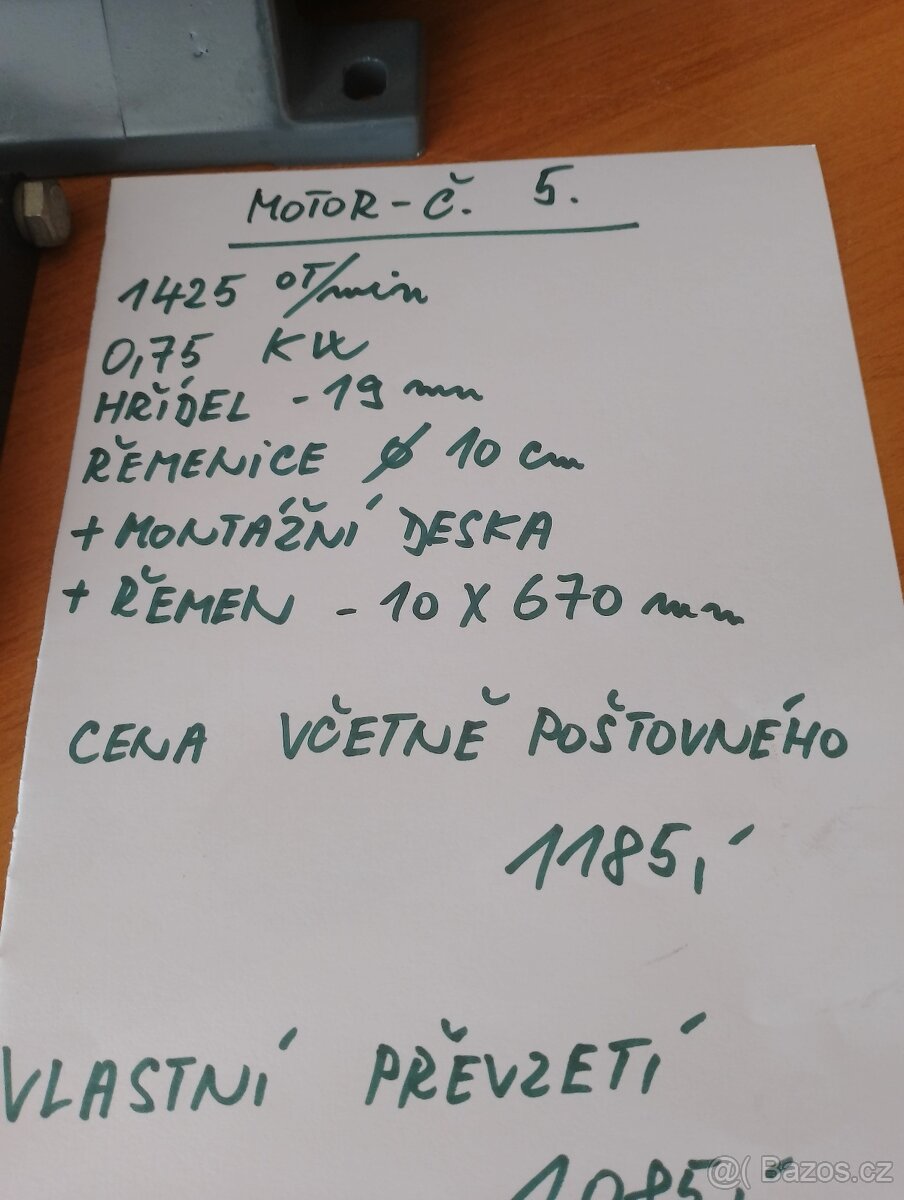 MOTOR - Č. 5.
1425 OT/min
0,75 KW
HŘÍDEL - 19 mm
ŘEMENICE ⌀ 10 cm
+ MONTÁŽNÍ DESKA
+ ŘEMEN - 10 X 670 mm
CENA VČETNĚ POŠTOVNÉHO
1185,-
VLASTNÍ PŘEVZETÍ
1085,-
@( Bazos.cz